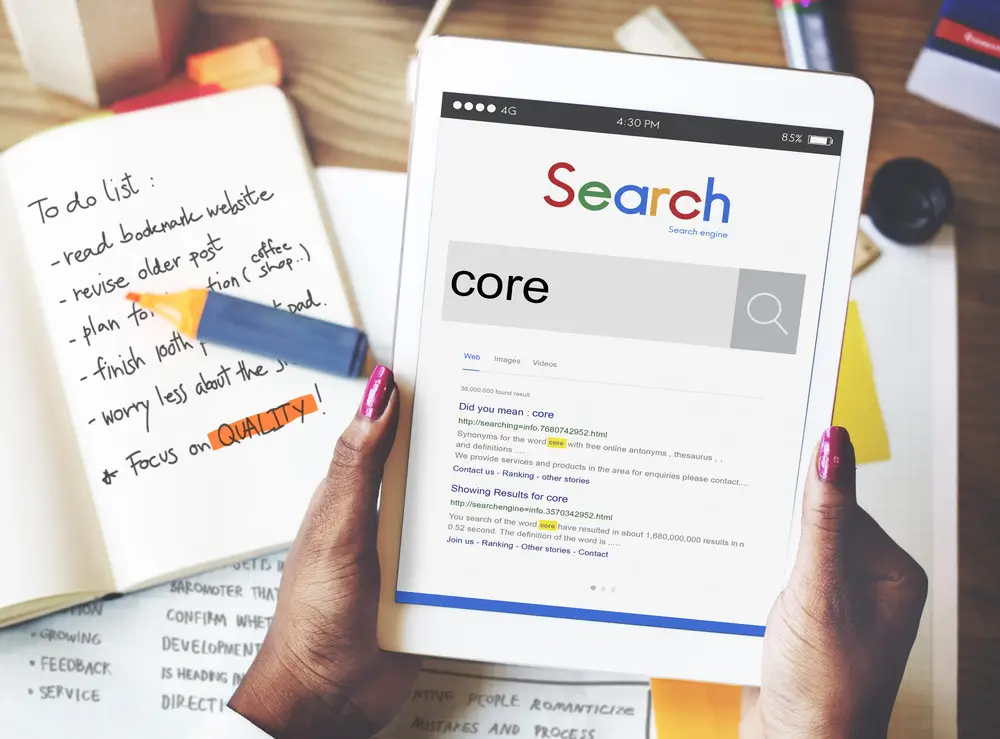 To do list :
- read bookmark website
- revise older post
- plan for tion ( coffee
shop.. )
- finish 100th pad.
- worry less about the
* Focus on QUALITY !
4G
4:30 PM
85%
Search
Search engine
core
Web Images Videos
36,000,000 found result
Did you mean : core
http://searching=info.7680742952.html
Synonyms for the word core with free online antonyms , thesaurus , ,
and definitions ....
We provide services and products in the area for enquiries please contact....
Contact us - Ranking - other stories
Showing Results for core
http://searchengine=info.3570342952.html
You search of the word core have resulted in about 1,680,000,000 results in n
0.52 second. The definition of the word is .....
Join us - Ranking - Other stories - Contact
• GROWING
• FEEDBACK
• SERVICE
BAROMOTER THAT
CONFIRM WHET
DEVELOPMENT
IS HEADING IN
DIRECTI
TIVE PEOPLE ROMANTICIZE
MISTAKES AND PROCESS